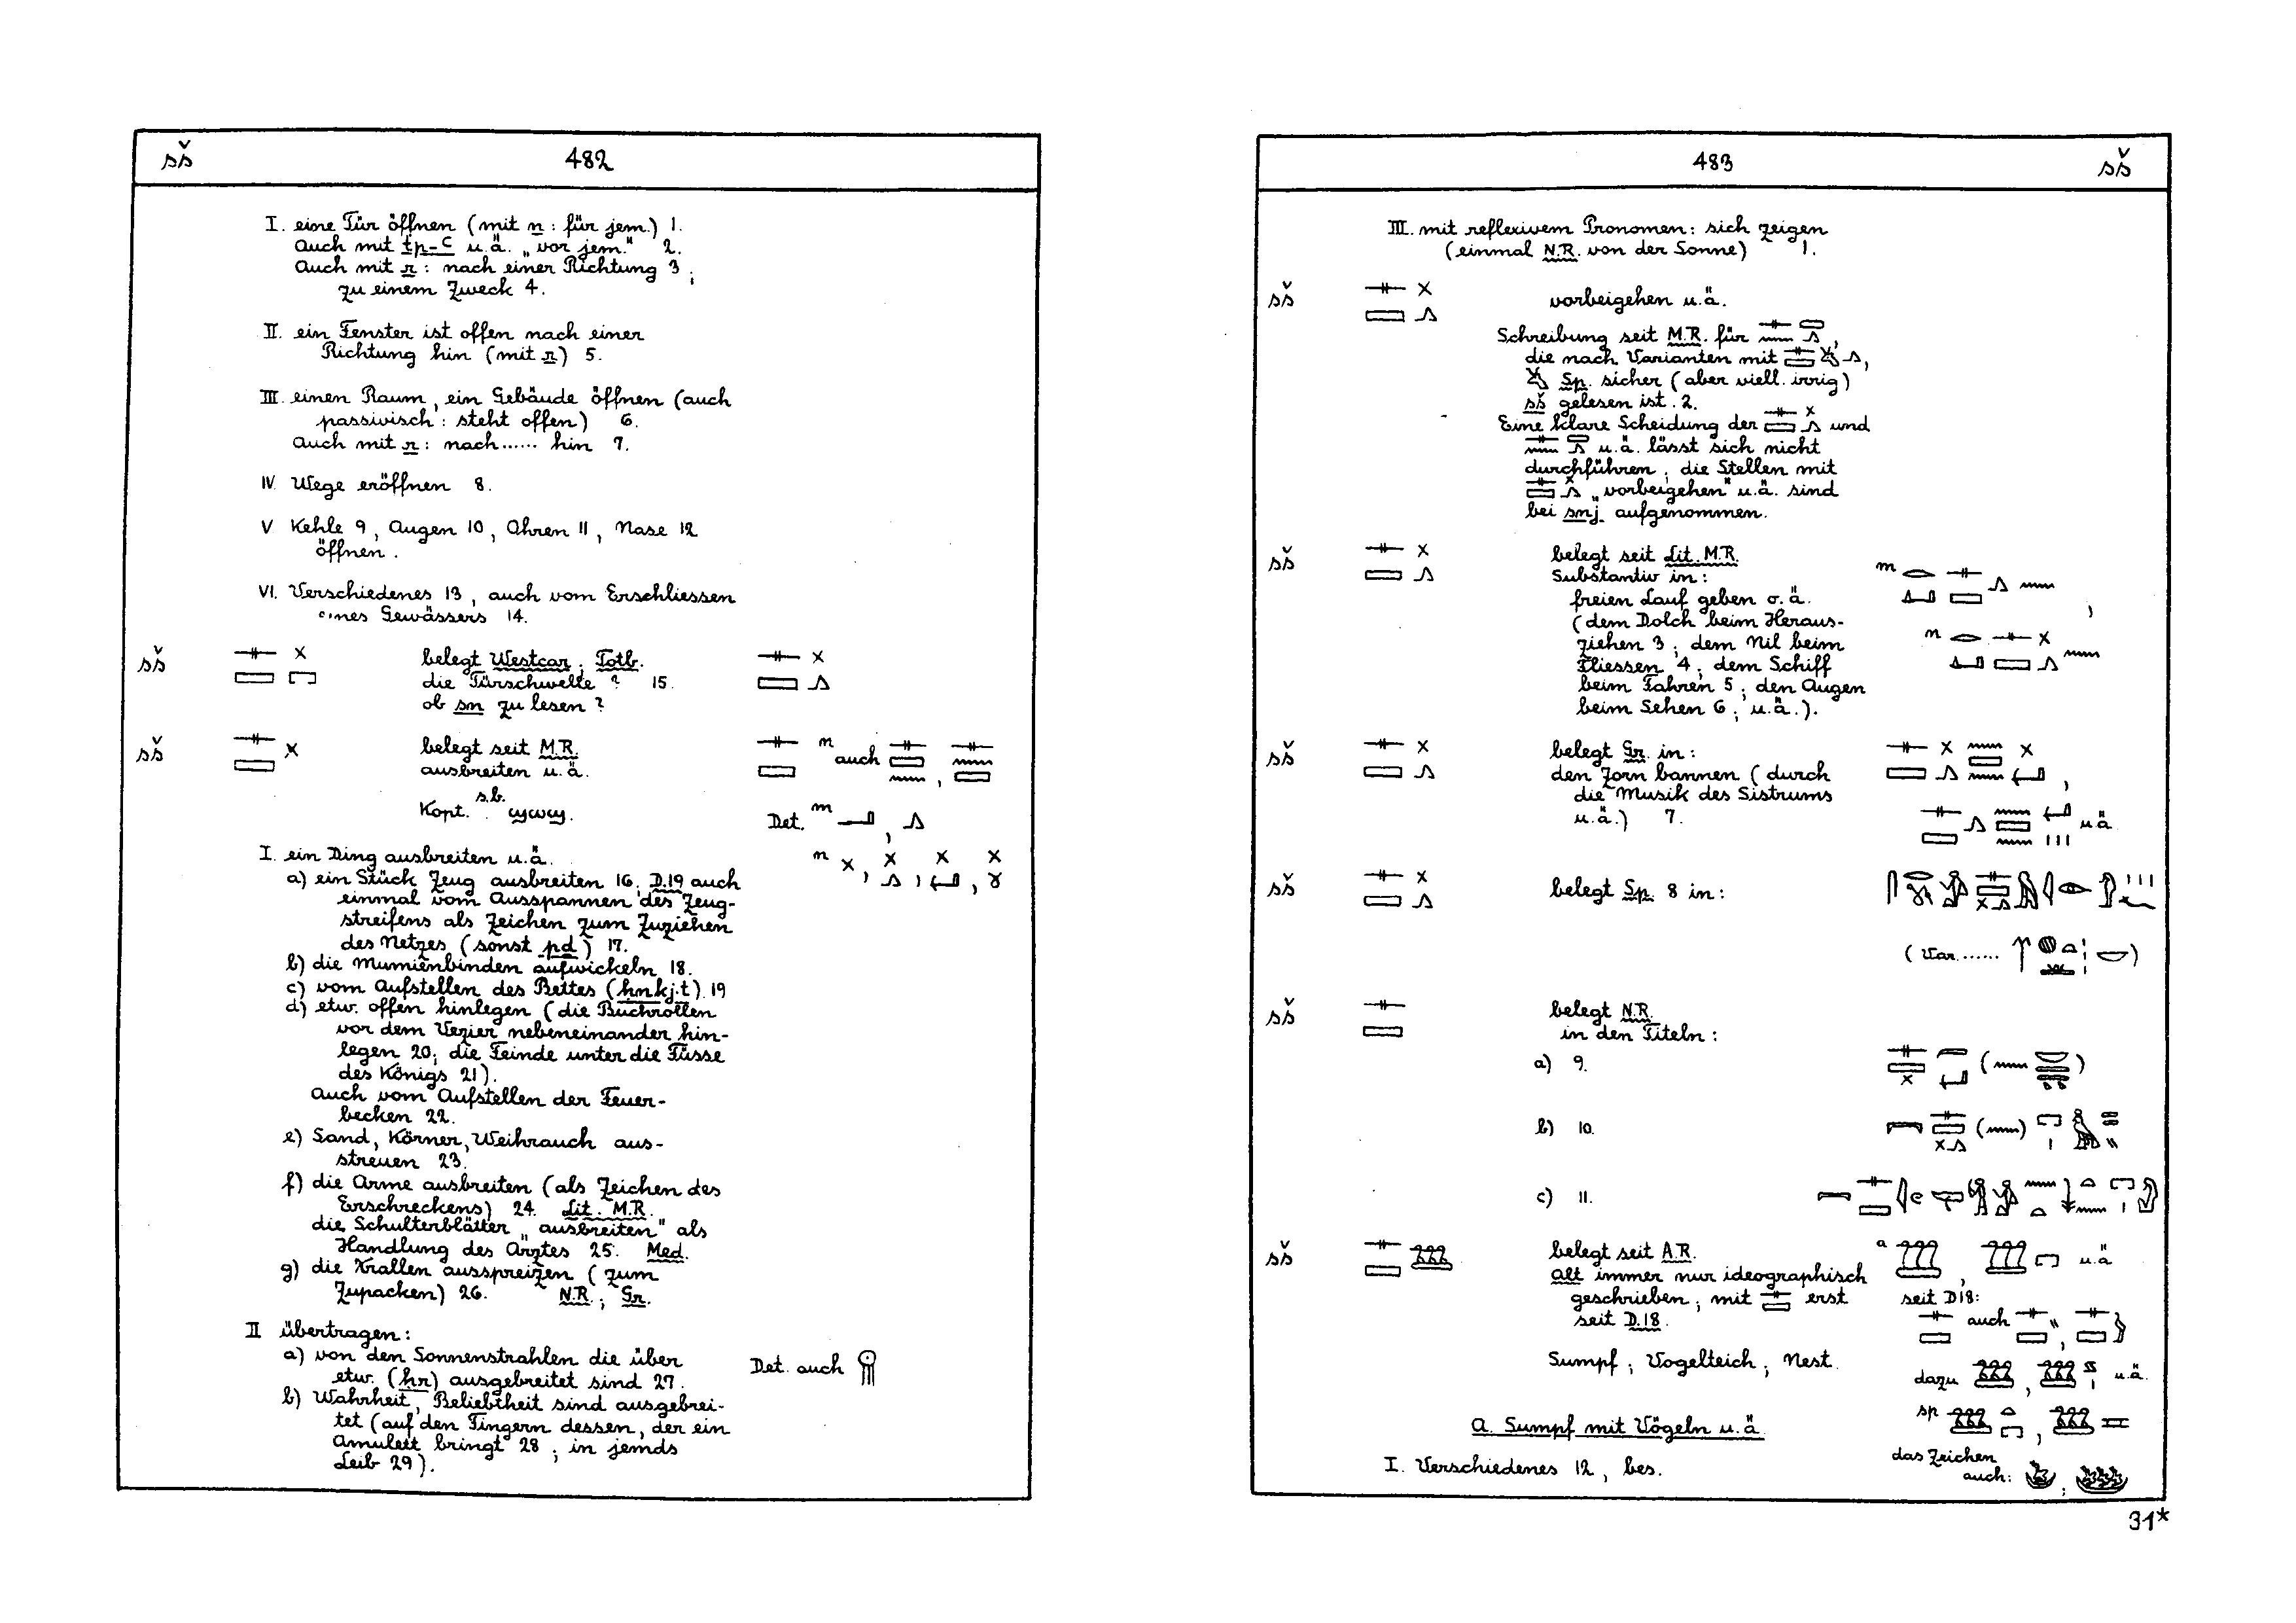 sš 482
I. eine Tür öffnen (mit n : für jem.) 1.
Auch mit tp-ꜥ u.ä. „vor jem." 2.
Auch mit r : nach einer Richtung 3 ;
zu einem Zweck 4.
II. ein Fenster ist offen nach einer
Richtung hin (mit r) 5.
III. einen Raum, ein Gebäude öffnen (auch
passivisch : steht offen) 6.
Auch mit r : nach ...... hin 7.
IV. Wege eröffnen 8.
V Kehle 9, Augen 10, Ohren 11, Nase 12
öffnen.
VI. Verschiedenes 13, auch vom Erschliessen
eines Gewässers 14.
sš belegt Westcar ; Totb.
die Türschwelle ? 15.
ob sn zu lesen ?
sš belegt seit M.R. auch
ausbreiten u.ä.
Kopt. s.b. ϣⲱϣ. Det.
I. ein Ding ausbreiten u.ä.
a) ein Stück Zeug ausbreiten 16. D.19 auch
einmal vom Ausspannen des Zeug-
streifens als Zeichen zum Zuziehen
des Netzes (sonst pd) 17.
b) die Mumienbinden aufwickeln 18.
c) vom Aufstellen des Bettes (hnkj.t) 19
d) etw. offen hinlegen (die Buchrollen
vor dem Vezier nebeneinander hin-
legen 20; die Feinde unter die Füsse
des Königs 21).
Auch vom Aufstellen der Feuer-
becken 22.
e) Sand, Körner, Weihrauch aus-
streuen 23.
f) die Arme ausbreiten (als Zeichen des
Erschreckens) 24. Lit. M.R.
die Schulterblätter „ausbreiten" als
Handlung des Arztes 25. Med.
g) die Krallen ausspreizen (zum
Zupacken) 26. N.R. ; Gr.
II übertragen :
a) von den Sonnenstrahlen die über
etw. (hr) ausgebreitet sind 27. Det. auch
b) Wahrheit, Beliebtheit sind ausgebrei-
tet (auf den Fingern dessen, der ein
Amulett bringt 28 ; in jemds
Leib 29).
483 sš
III. mit reflexivem Pronomen : sich zeigen
(einmal N.R. von der Sonne) 1.
sš vorbeigehen u.ä.
Schreibung seit M.R. für
die nach Varianten mit
Sp. sicher (aber viell. irrig)
sš gelesen ist. 2.
Eine klare Scheidung der und
u.ä. lässt sich nicht
durchführen ; die Stellen mit
„vorbeigehen" u.ä. sind
bei snj aufgenommen.
sš belegt seit Lit. M.R.
Substantiv in :
freien Lauf geben o.ä.
(dem Dolch beim Heraus-
ziehen 3 ; dem Nil beim
Fliessen 4 ; dem Schiff
beim Fahren 5 ; den Augen
beim Sehen 6 ; u.ä.).
sš belegt Gr. in :
den Zorn bannen (durch
die Musik des Sistrums
u.ä.) 7. u.ä
sš belegt Sp. 8 in :
(Var. ...... )
sš belegt N.R.
in den Titeln :
a) 9.
b) 10.
c) 11.
sš belegt seit A.R. u.ä
alt immer nur ideographisch
geschrieben ; mit erst seit D18:
seit D.18. auch
Sumpf ; Vogelteich ; Nest. dazu u.ä.
A. Sumpf mit Vögeln u.ä. sp
I. Verschiedenes 12, bes. das Zeichen
auch :
31*